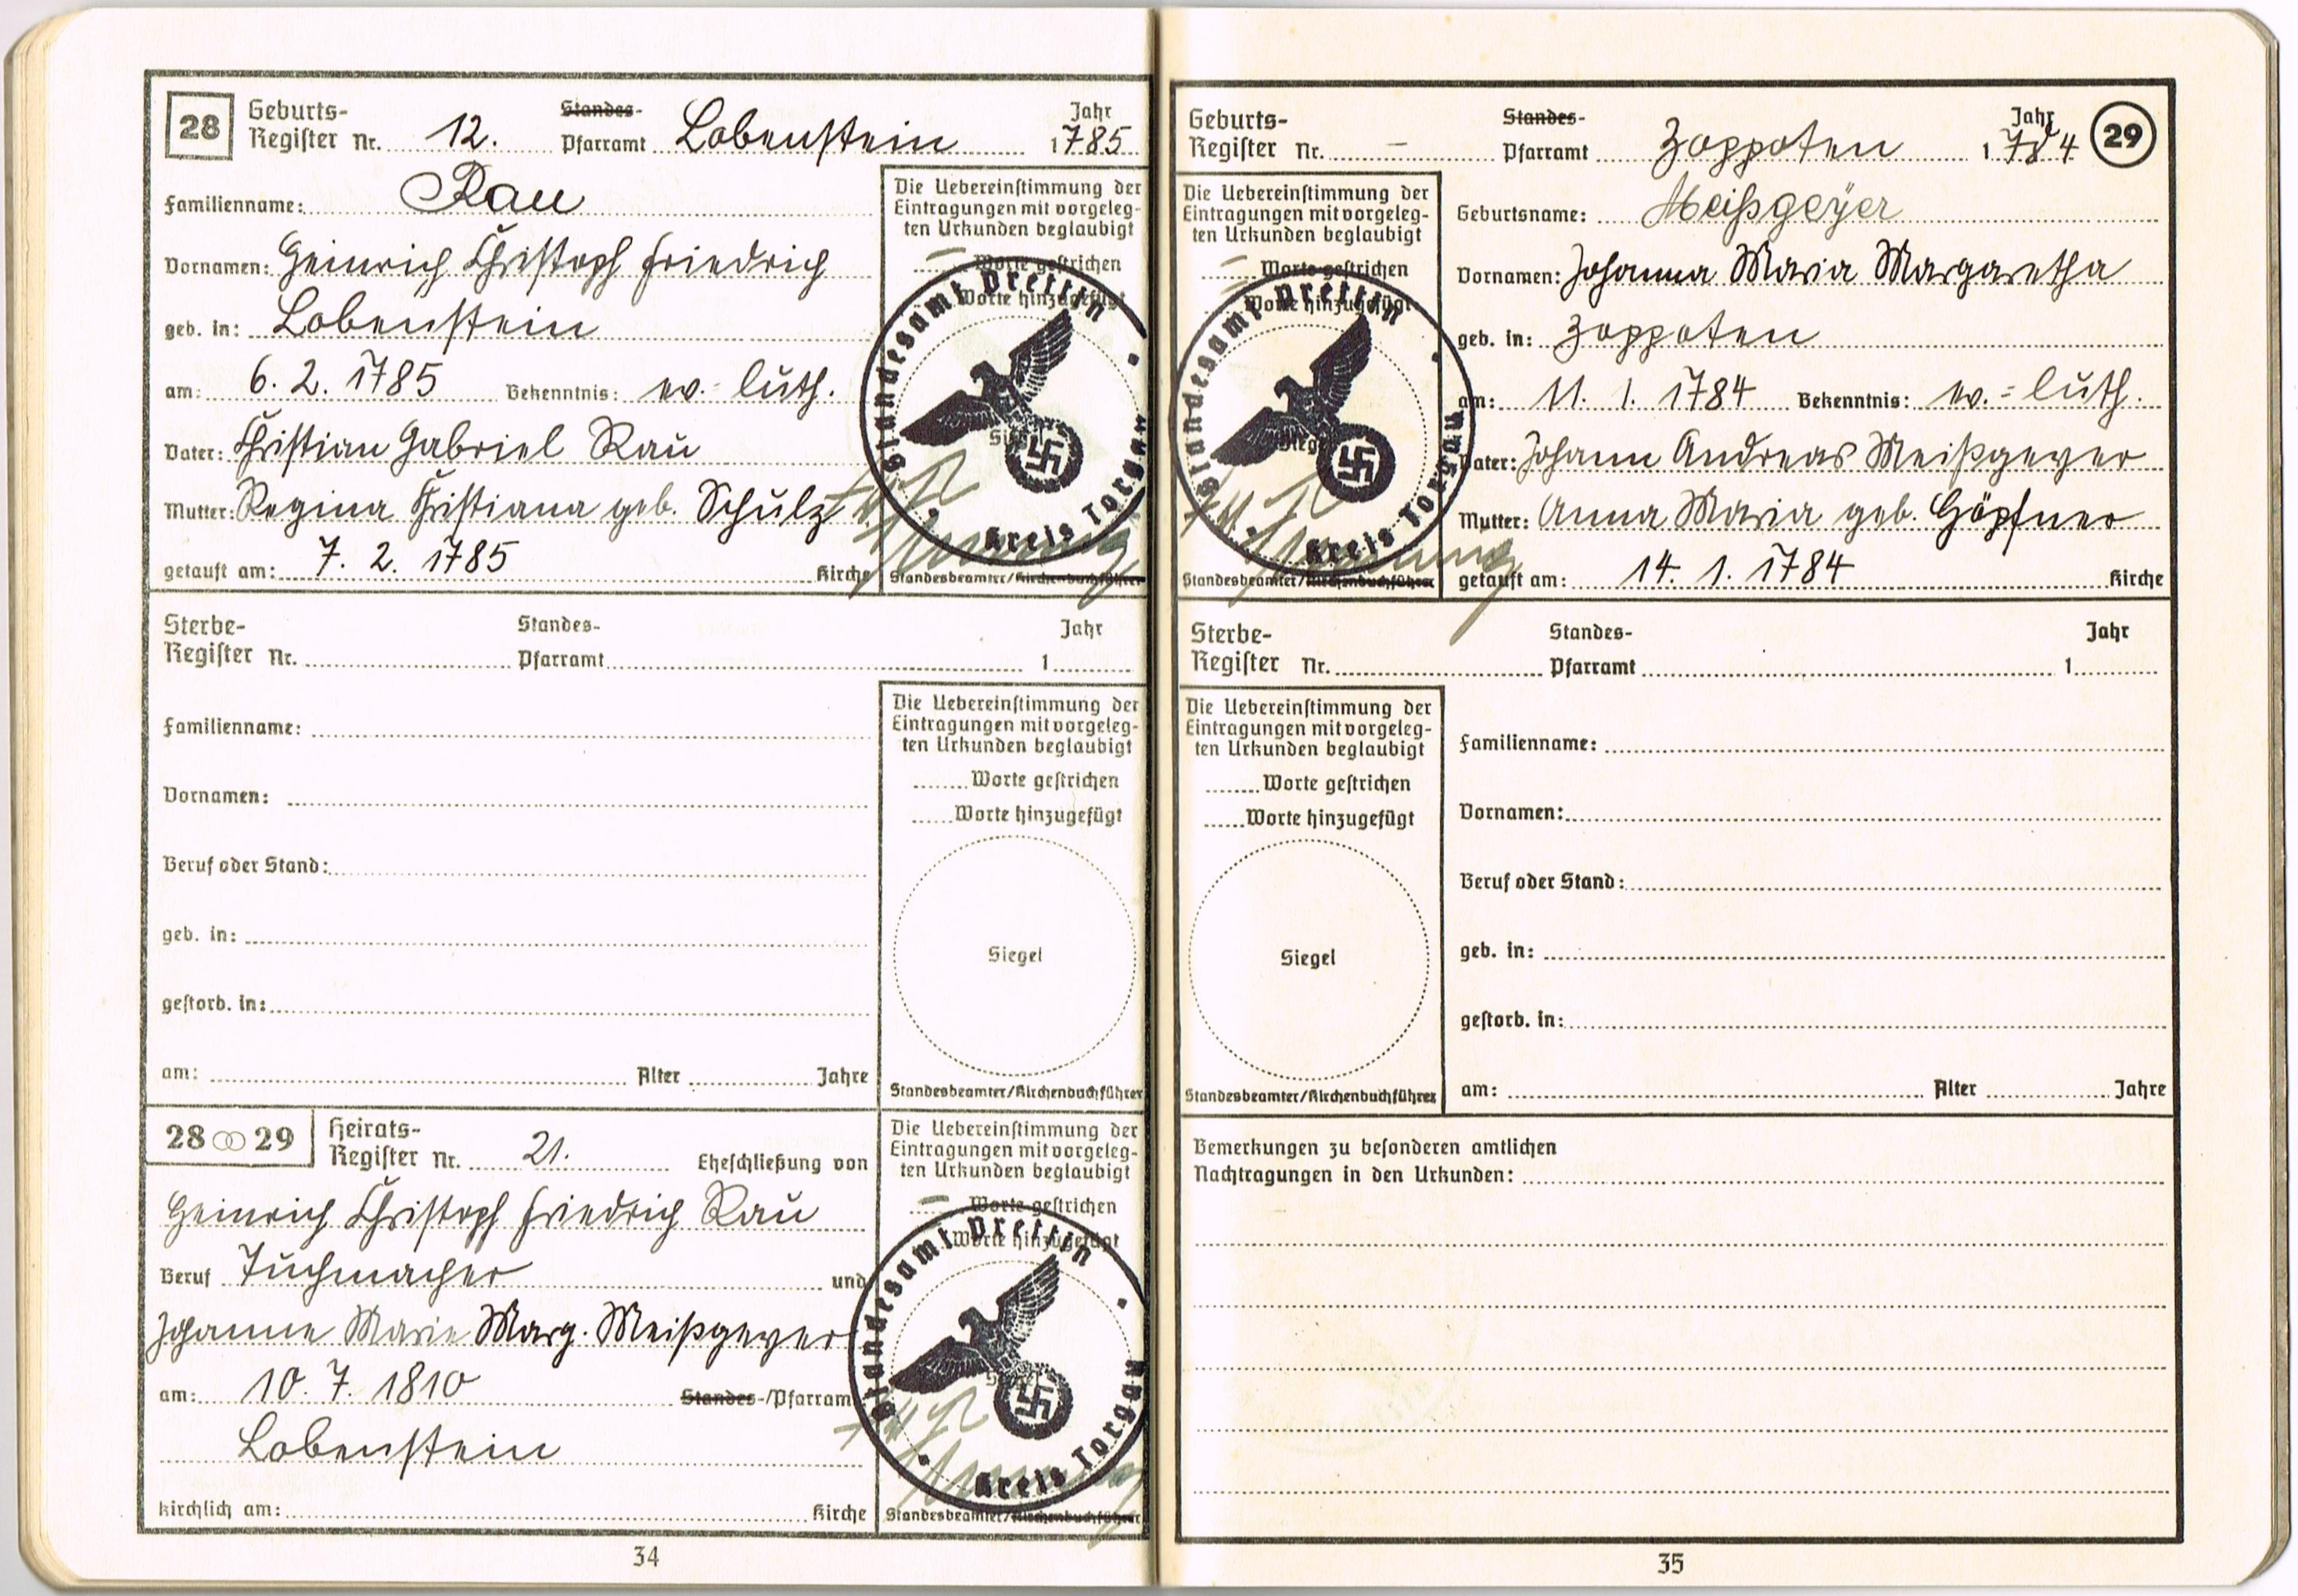 28 Geburts-Register Nr. 12. Standes-Pfarramt Lobenstein Jahr 1785
Die Uebereinstimmung der
Eintragungen mit vorgeleg-
ten Urkunden beglaubigt
— Worte gestrichen
Worte hinzugefügt
Siegel
Standesamt Prettin
Kreis Torgau
Standesbeamter/Kirchenbuchführer
Familienname: Rau
Vornamen: Heinrich Christoph Friedrich
geb. in: Lobenstein
am: 6. 2. 1785 Bekenntnis: ev.-luth.
Vater: Christian Gabriel Rau
Mutter: Regina Christiana geb. Schulz
getauft am: 7. 2. 1785 Kirche
Sterbe-Register Nr. Standes-Pfarramt Jahr 1
Die Uebereinstimmung der
Eintragungen mit vorgeleg-
ten Urkunden beglaubigt
Worte gestrichen
Worte hinzugefügt
Siegel
Standesbeamter/Kirchenbuchführer
Familienname:
Vornamen:
Beruf oder Stand:
geb. in:
gestorb. in:
am: Alter Jahre
28 29 Heirats-Register Nr. 21. Eheschließung von
Heinrich Christoph Friedrich Rau
Beruf Tuchmacher und
Johanne Marie Marg. Meißgeyer
am: 10. 7. 1810 Standes-/Pfarramt
Lobenstein
kirchlich am: Kirche
Die Uebereinstimmung der
Eintragungen mit vorgeleg-
ten Urkunden beglaubigt
— Worte gestrichen
Worte hinzugefügt
Siegel
Standesamt Prettin
Kreis Torgau
Standesbeamter/Kirchenbuchführer
34
Geburts-Register Nr. — Standes-Pfarramt Zoppoten Jahr 1784 29
Die Uebereinstimmung der
Eintragungen mit vorgeleg-
ten Urkunden beglaubigt
— Worte gestrichen
Worte hinzugefügt
Siegel
Standesamt Prettin
Kreis Torgau
Standesbeamter/Kirchenbuchführer
Geburtsname: Meißgeÿer
Vornamen: Johanna Maria Margaretha
geb. in: Zoppoten
am: 11. 1. 1784 Bekenntnis: ev.-luth.
Vater: Johann Andreas Meißgeyer
Mutter: Anna Maria geb. Höpfner
getauft am: 14. 1. 1784 Kirche
Sterbe-Register Nr. Standes-Pfarramt Jahr 1
Die Uebereinstimmung der
Eintragungen mit vorgeleg-
ten Urkunden beglaubigt
Worte gestrichen
Worte hinzugefügt
Siegel
Standesbeamter/Kirchenbuchführer
Familienname:
Vornamen:
Beruf oder Stand:
geb. in:
gestorb. in:
am: Alter Jahre
Bemerkungen zu besonderen amtlichen
Nachtragungen in den Urkunden:
35